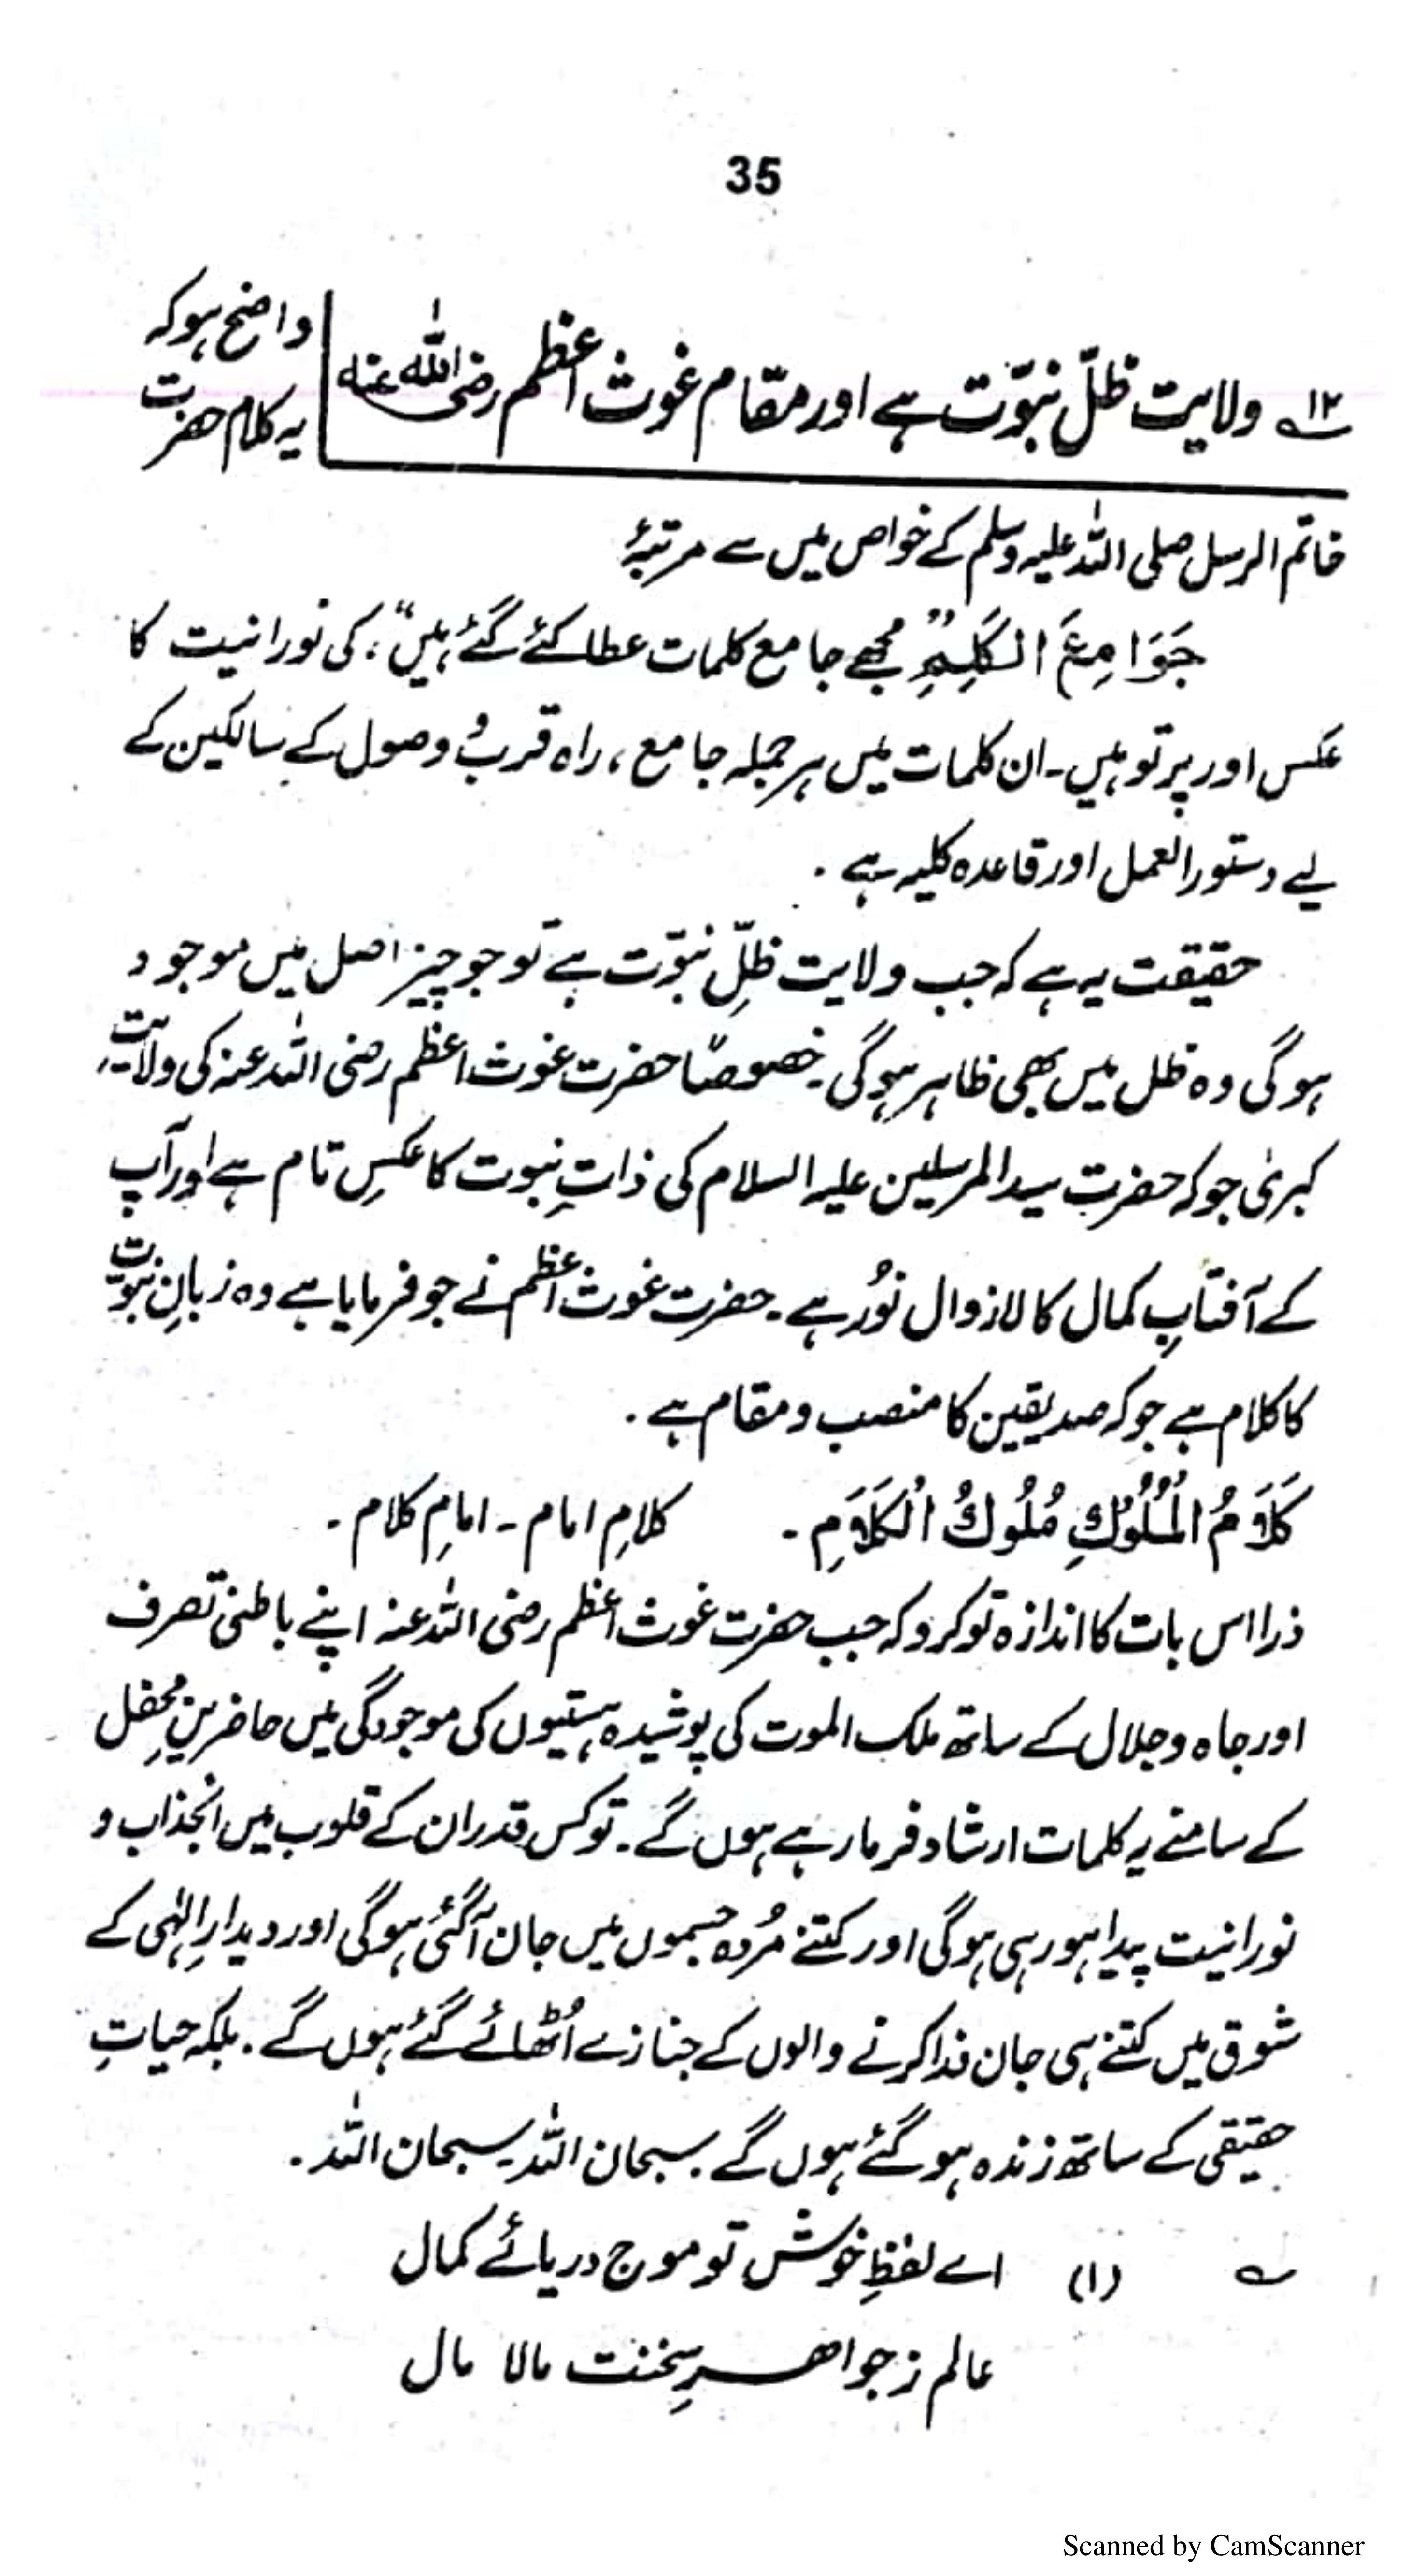 35
۱۲ ولایت ظلّ نبوّت ہے اور مقام غوث اعظم رضی اللہ عنہ
واضح ہو کہ
یہ کلام حضرت
خاتم الرسل صلی اللہ علیہ وسلم کے خواص میں سے مرتبۂ
جَوَامِعَ الْكَلِمِ "مجھے جامع کلمات عطا کئے گئے ہیں"، کی نورانیت کا
عکس اور پرتو ہیں۔ ان کلمات میں ہر جملہ جامع، راہ قرب و وصول کے سالکین کے
لیے دستور العمل اور قاعدہ کلیہ ہے۔
حقیقت یہ ہے کہ جب ولایت ظلِّ نبوّت ہے تو جو چیز اصل میں موجود
ہو گی وہ ظل میں بھی ظاہر ہو گی۔ خصوصًا حضرت غوث اعظم رضی اللہ عنہ کی ولایتِ
کبریٰ جو کہ حضرت سید المرسلین علیہ السلام کی ذاتِ نبوت کا عکسِ تام ہے اور آپ
کے آفتابِ کمال کا لازوال نُور ہے۔ حضرت غوث اعظم نے جو فرمایا ہے وہ زبانِ نبوّت
کا کلام ہے جو کہ صدیقین کا منصب و مقام ہے۔
كَلَامُ الْمُلُوْكِ مُلُوكُ الْكَلَامِ۔ کلامِ امام۔ امامِ کلام۔
ذرا اس بات کا اندازہ تو کرو کہ جب حضرت غوث اعظم رضی اللہ عنہ اپنے باطنی تصرف
اور جاہ و جلال کے ساتھ ملک الموت کی پوشیدہ ہستیوں کی موجودگی میں حاضرینِ محفل
کے سامنے یہ کلمات ارشاد فرما رہے ہوں گے۔ تو کس قدر ان کے قلوب میں انجذاب و
نورانیت پیدا ہو رہی ہو گی اور کتنے مُردہ جسموں میں جان آ گئی ہو گی اور دیدارِ الٰہی کے
شوق میں کتنے ہی جان فدا کرنے والوں کے جنازے اُٹھائے گئے ہوں گے۔ بلکہ حیاتِ
حقیقی کے ساتھ زندہ ہو گئے ہوں گے۔ سبحان اللہ۔ سبحان اللہ۔
؎ (۱) اے لفظِ خوش تو موج دریائے کمال
عالم ز جواهرِ سخنت مالا مال
Scanned by CamScanner